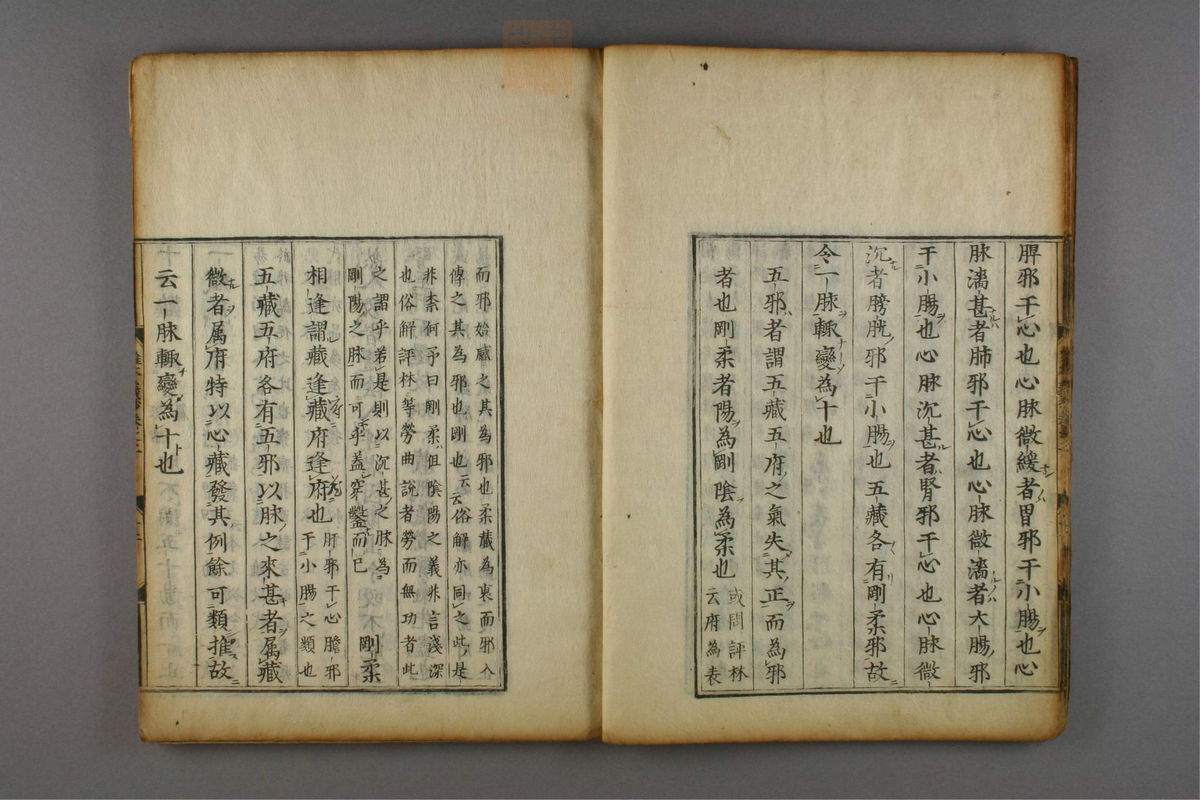 脾邪干心也心脉微緩者胃邪干小腸也心
脉濇甚者肺邪干心也心脉微濇者大腸邪
干小腸也心脉沉甚者腎邪干心也心脉微
沉者膀胱邪干小腸也五藏各有剛柔邪故
令一脉輙變為十也
五邪者謂五藏五府之氣失其正而為邪
者也剛柔者陽為剛陰為柔也或問評林
云府為表
而邪始感之其為邪也柔藏為衷而邪入
傳之其為邪也剛也云云俗解亦同之此是
非柰何予曰剛柔但陰陽之義非言淺深
也俗解評林等勞曲說者勞而無功者此
之謂乎若是則以沉甚之脉為
剛陽之脉而可乎蓋穿鑿而已
剛柔
相逢謂藏逢藏府逢府也肝邪干心膽邪
干小腸之類也
五藏五府各有五邪以脉之來甚者属藏
微者属府特以心藏發其例餘可類推故
云一脉輙變為十也